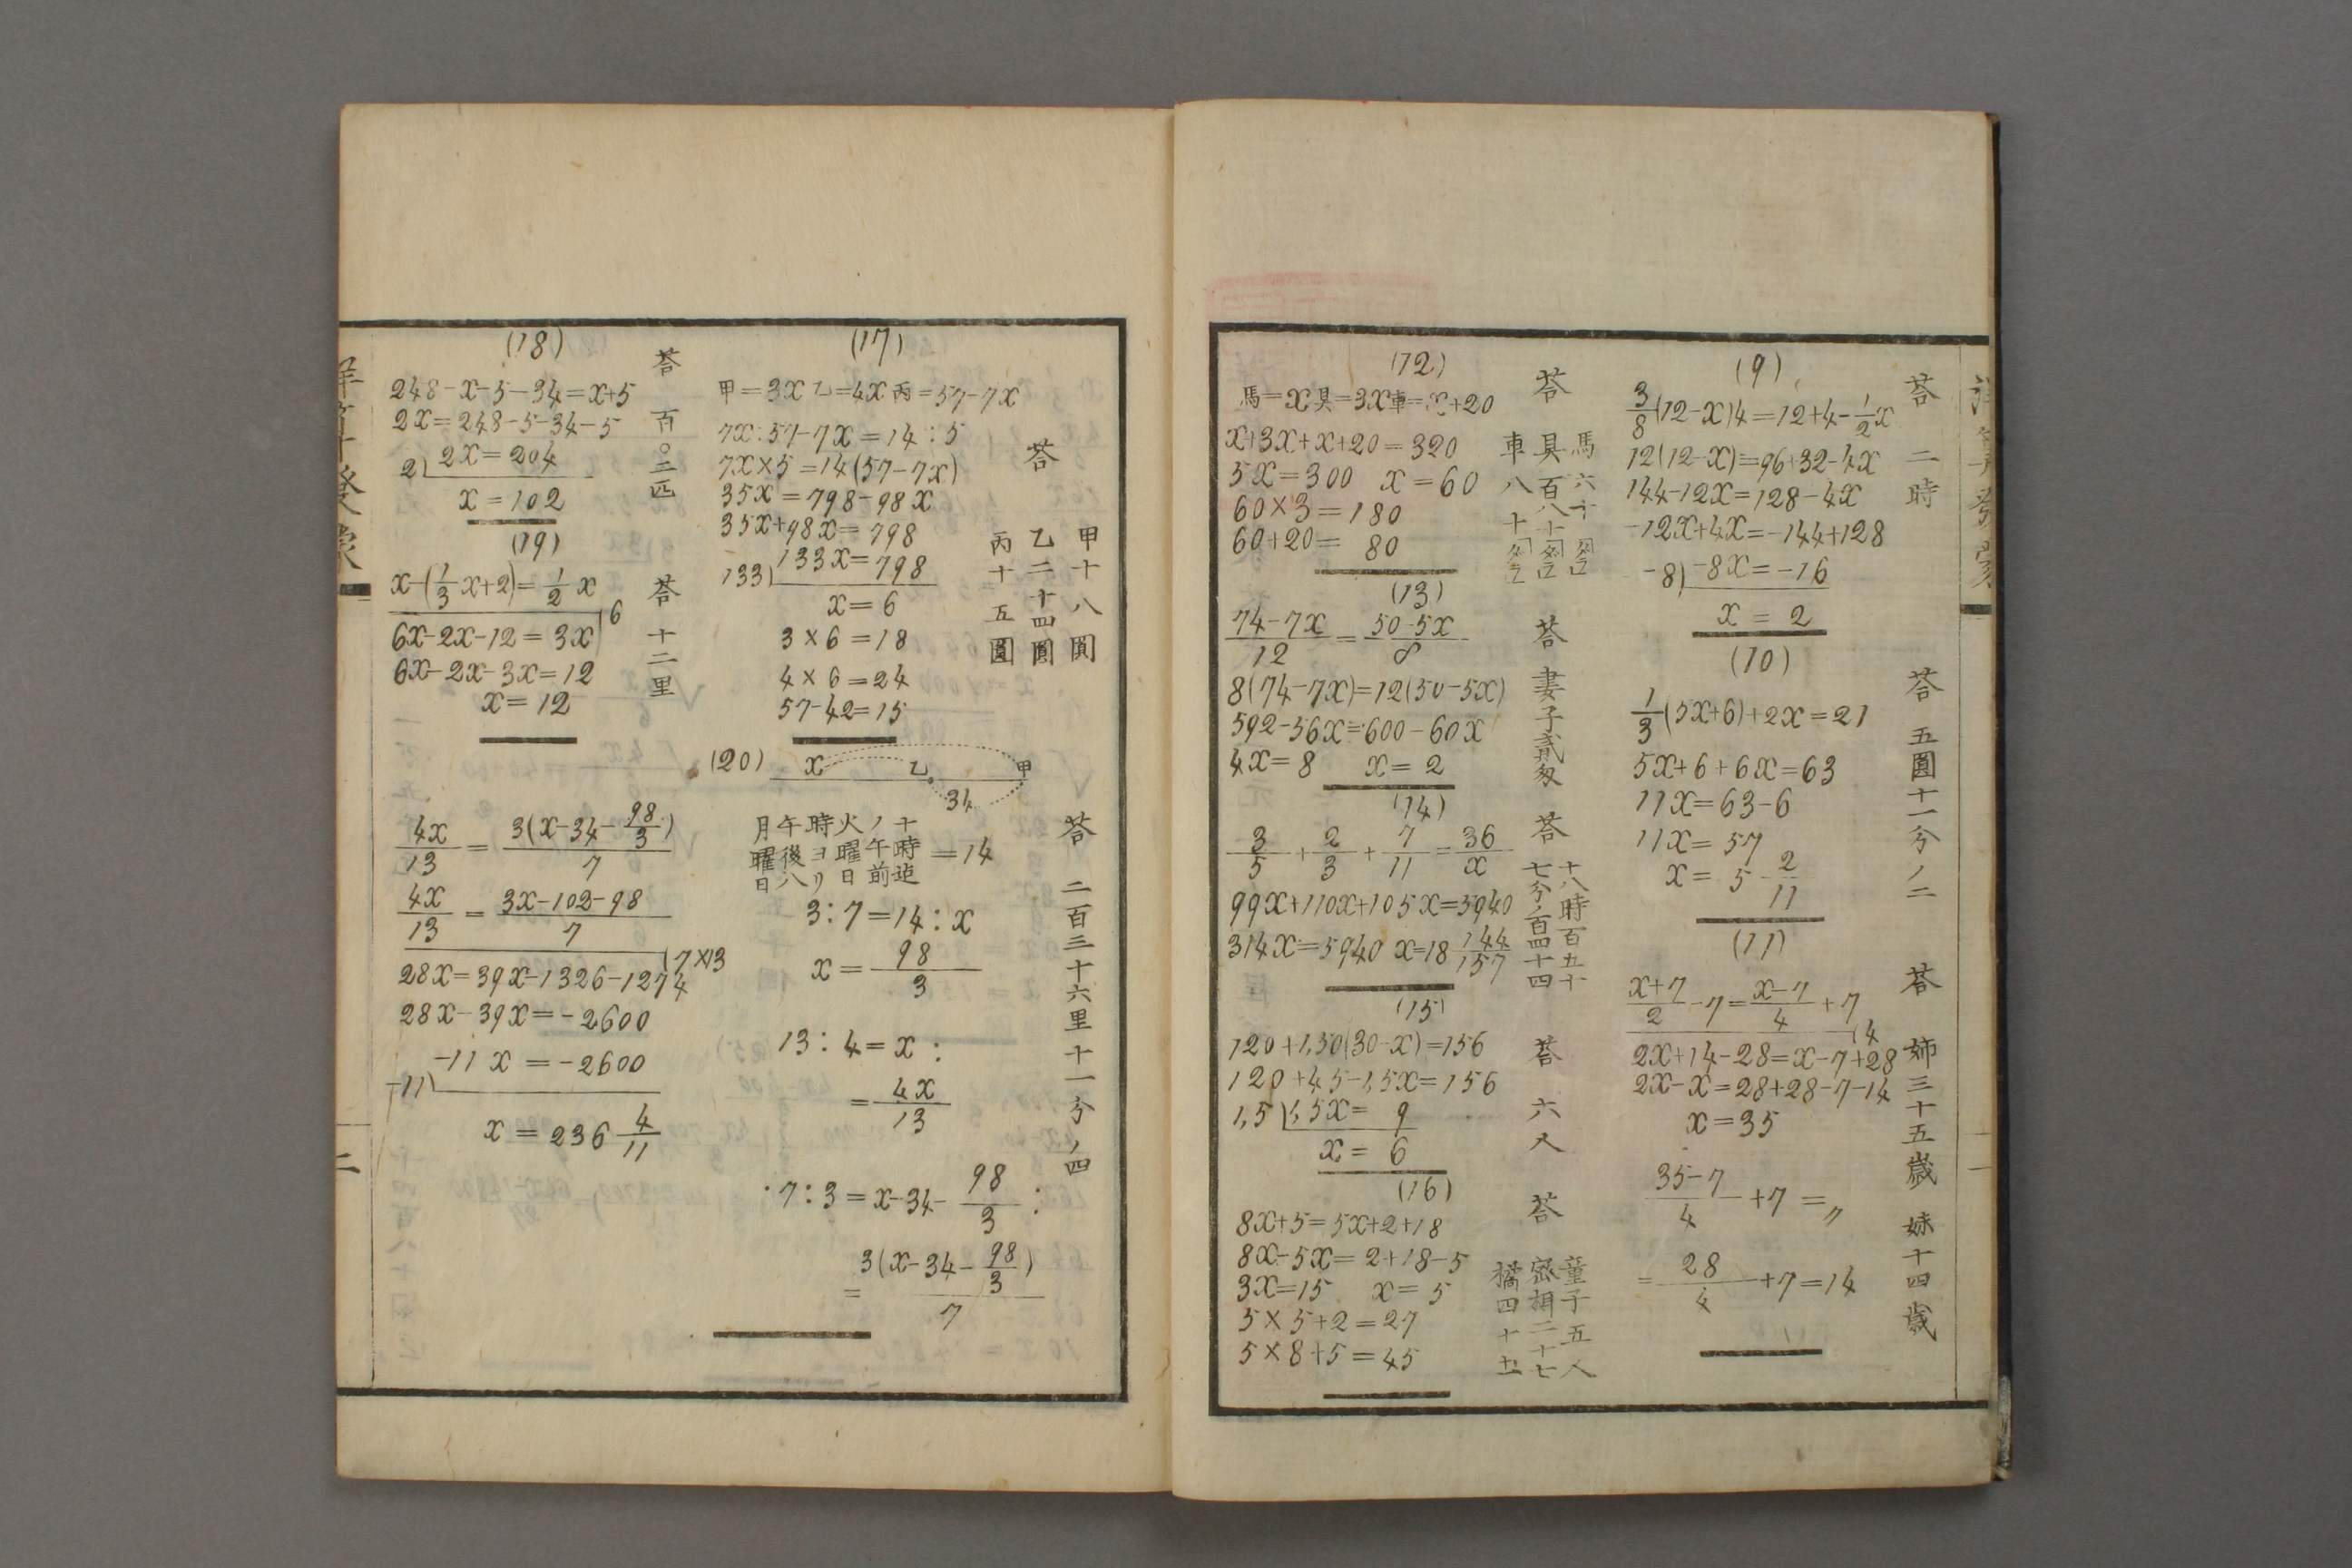 (9)
答 二時
3/8(12-x)4=12+4-1/2x
12(12-x)=96+32-4x
144-12x=128-4x
-12x+4x=-144+128
-8) -8x=-16
x = 2
(10)
答 五圓十一分ノ二
1/3(5x+6)+2x=21
5x+6+6x=63
11x=63-6
11x=57
x= 5 2/11
(11)
答 姉三十五歳 妹十四歳
(x+7)/2-7=(x-7)/4+7
(4
2x+14-28=x-7+28
2x-x=28+28-7-14
x=35
(35-7)/4+7=〃
=28/4+7=14
(12)
馬=x具=3x車=x+20
答
馬六十
具百八十
車八十
x+3x+x+20=320
5x=300 x=60
60×3=180
60+20= 80
(13)
答 妻子貳
(74-7x)/12=(50-5x)/8
8(74-7x)=12(50-5x)
592-56x=600-60x
4x=8 x=2
(14)
答
十八時百五十
七分ノ百四十四
3/5+2/3+7/11=36/x
99x+110x+105x=5940
314x=5940 x=18 144/157
(15)
答 六人
120+1,50(30-x)=156
120+45-1,5x=156
1,5) 1,5x= 9
x= 6
(16)
答
童子五人
密柑二十七
橘四十五
8x+5=5x+2+18
8x-5x=2+18-5
3x=15 x=5
5×5+2=27
5×8+5=45
(17)
甲=3x乙=4x丙=57-7x
答
甲十八圓
乙二十四圓
丙十五圓
7x:57-7x=14:5
7x×5=14(57-7x)
35x=798-98x
35x+98x=798
133) 133x=798
x=6
3×6=18
4×6=24
57-42=15
(18)
答 百〇二匹
248-x-5-34=x+5
2x=248-5-34-5
2) 2x=204
x=102
(19)
答 十二里
x-(1/3x+2)=1/2x
6
6x-2x-12=3x
6x-2x-3x=12
x=12
(20)
x 乙 甲
34
答 二百三十六里十一分ノ四
月曜日
午後八
時ヨリ
火曜日
ノ午前
十時迠
=14
3:7=14:x
x=98/3
13:4=x:
=4x/13
7:3=x-34-98/3:
=3(x-34-98/3)/7
4x/13=3(x-34-98/3)/7
4x/13=(3x-102-98)/7
(7×13
28x=39x-1326-1274
28x-39x=-2600
-11) -11x=-2600
x=236 4/11
二